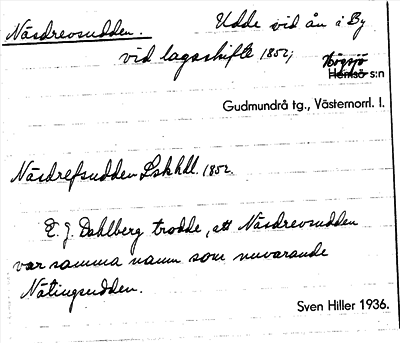 Näsdrevsudden. Udde vid ån i By
vid lagaskifte 1852;
Högsjö
Hemsö s:n
Gudmundrå tg., Västernorrl. l.
Näsdrefsudden Lskhdl. 1852.
E. J. Dahlberg trodde, att Näsdrevsudden
var samma namn som nuvarande
Nätingsudden.
Sven Hiller 1936.